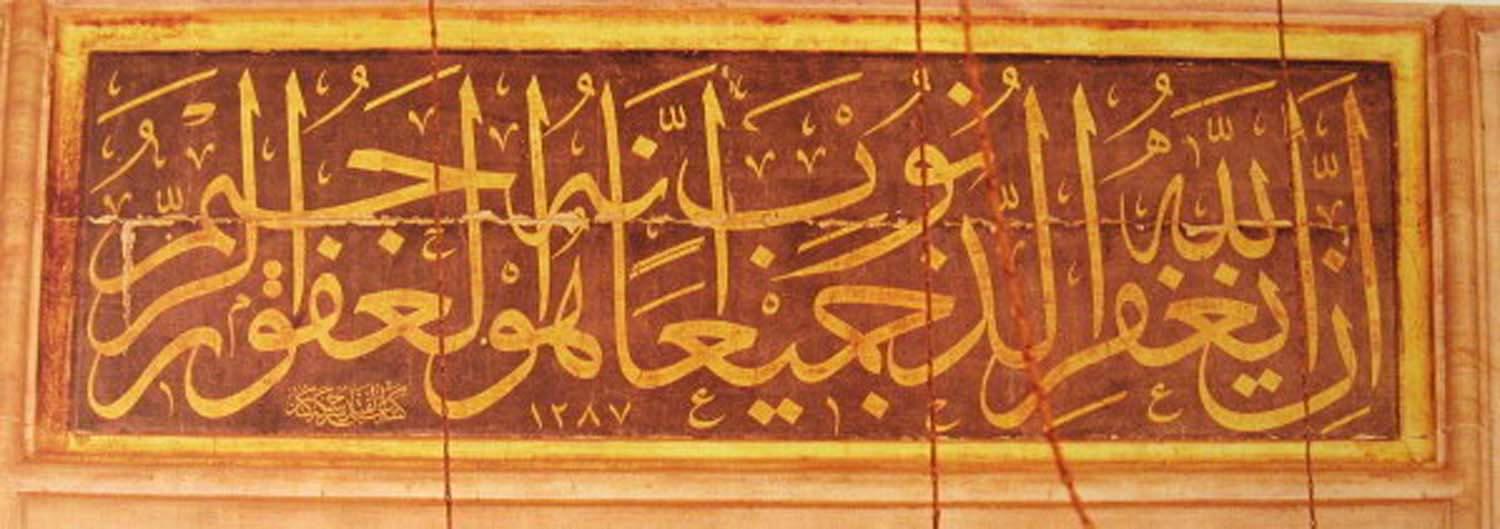 إن الله يغفر الذنوب جميعا إنه هو الغفور الرحيم
١٢٨٧